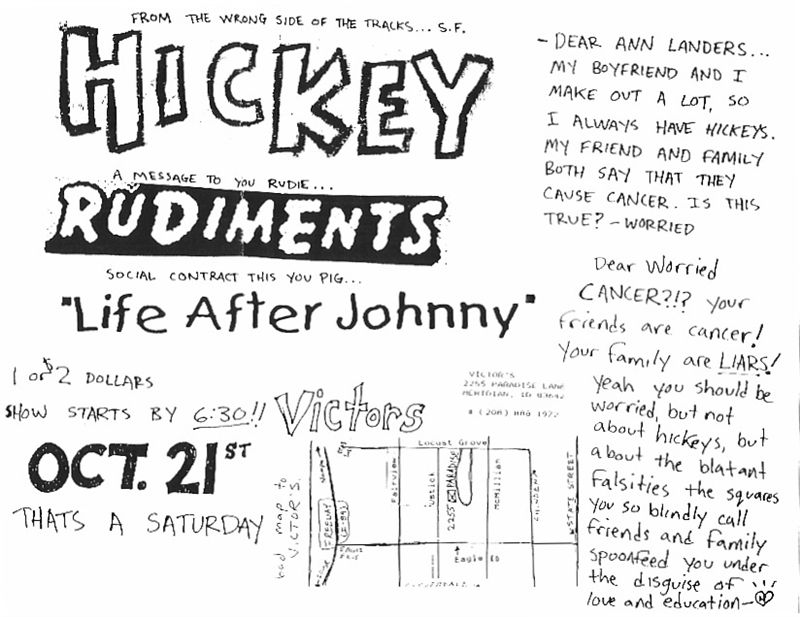 FROM THE WRONG SIDE OF THE TRACKS... S.F.
HICKEY
A MESSAGE TO YOU RUDIE...
RUDIMENTS
SOCIAL CONTRACT THIS YOU PIG...
"Life After Johnny"
1 or $2 DOLLARS
SHOW STARTS BY 6:30!!
OCT. 21ST
THATS A SATURDAY
- DEAR ANN LANDERS...
MY BOYFRIEND AND I
MAKE OUT A LOT, SO
I ALWAYS HAVE HICKEYS.
MY FRIEND AND FAMILY
BOTH SAY THAT THEY
CAUSE CANCER. IS THIS
TRUE? - WORRIED
Dear Worried
CANCER?!? your
friends are cancer!
Your family are LIARS!
yeah you should be
worried, but not
about hickeys, but
about the blatant
falsities the squares
you so blindly call
friends and family
spoonfeed you under
the disguise of
love and education-
Victors
VICTOR'S
2255 PARADISE LANE
MERIDIAN, ID 83642
bad map to
VICTOR'S.
Locust Grove
Fairview
Ustick
2255 PARADISE
McMillian
CHINDEN
STATE STREET
FREEWAY
Eagle Rd